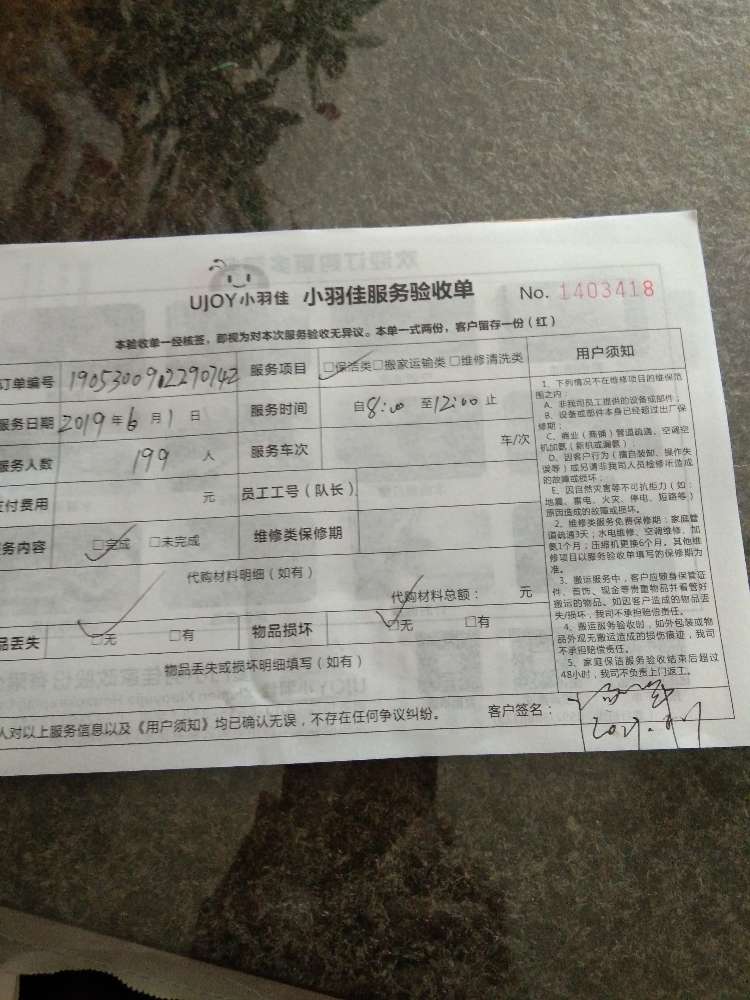 UJOY小羽佳 小羽佳服务验收单 No. 1403418
本验收单一经核签，即视为对本次服务验收无异议。本单一式两份，客户留存一份（红）
订单编号 190530092290742 服务项目 □保洁类□搬家运输类□维修清洗类
服务日期 2019年6月1日 服务时间 自8:00至12:00止
服务人数 199 人 服务车次 车/次
支付费用 元 员工工号（队长）
务内容 □完成 □未完成 维修类保修期
代购材料明细（如有）
代购材料总额： 元
品丢失 □无 □有 物品损坏 □无 □有
物品丢失或损坏明细填写（如有）
人对以上服务信息以及《用户须知》均已确认无误，不存在任何争议纠纷。 客户签名：
用户须知
1、下列情况不在维修项目的维保范
围之内：
A、非我司员工提供的设备或部件；
B、设备或部件本身已经超过出厂保
修期；
C、商业（商铺）管道疏通、空调空
机加氨（新机或漏氨）；
D、因客户行为（擅自装卸、操作失
误等）或另请非我司人员检修所造成
的故障或损坏；
E、因自然灾害等不可抗拒力（如：
地震、雷电、火灾、停电、短路等）
原因造成的故障或损坏。
2、维修类服务免费保修期：家庭管
道疏通3天；水电维修、空调维修、加
氨1个月；压缩机更换6个月。其他维
修项目以服务验收单填写的保修期为
准。
3、搬运服务中，客户应随身保管证
件、首饰、现金等贵重物品并看管好
搬运的物品。如因客户造成的物品丢
失/损坏，我司不承担赔偿责任。
4、搬运服务验收时，如外包装或物
品外观无搬运造成的损伤痕迹，我司
不承担赔偿责任。
5、家庭保洁服务验收结束后超过
48小时，我司不负责上门返工。